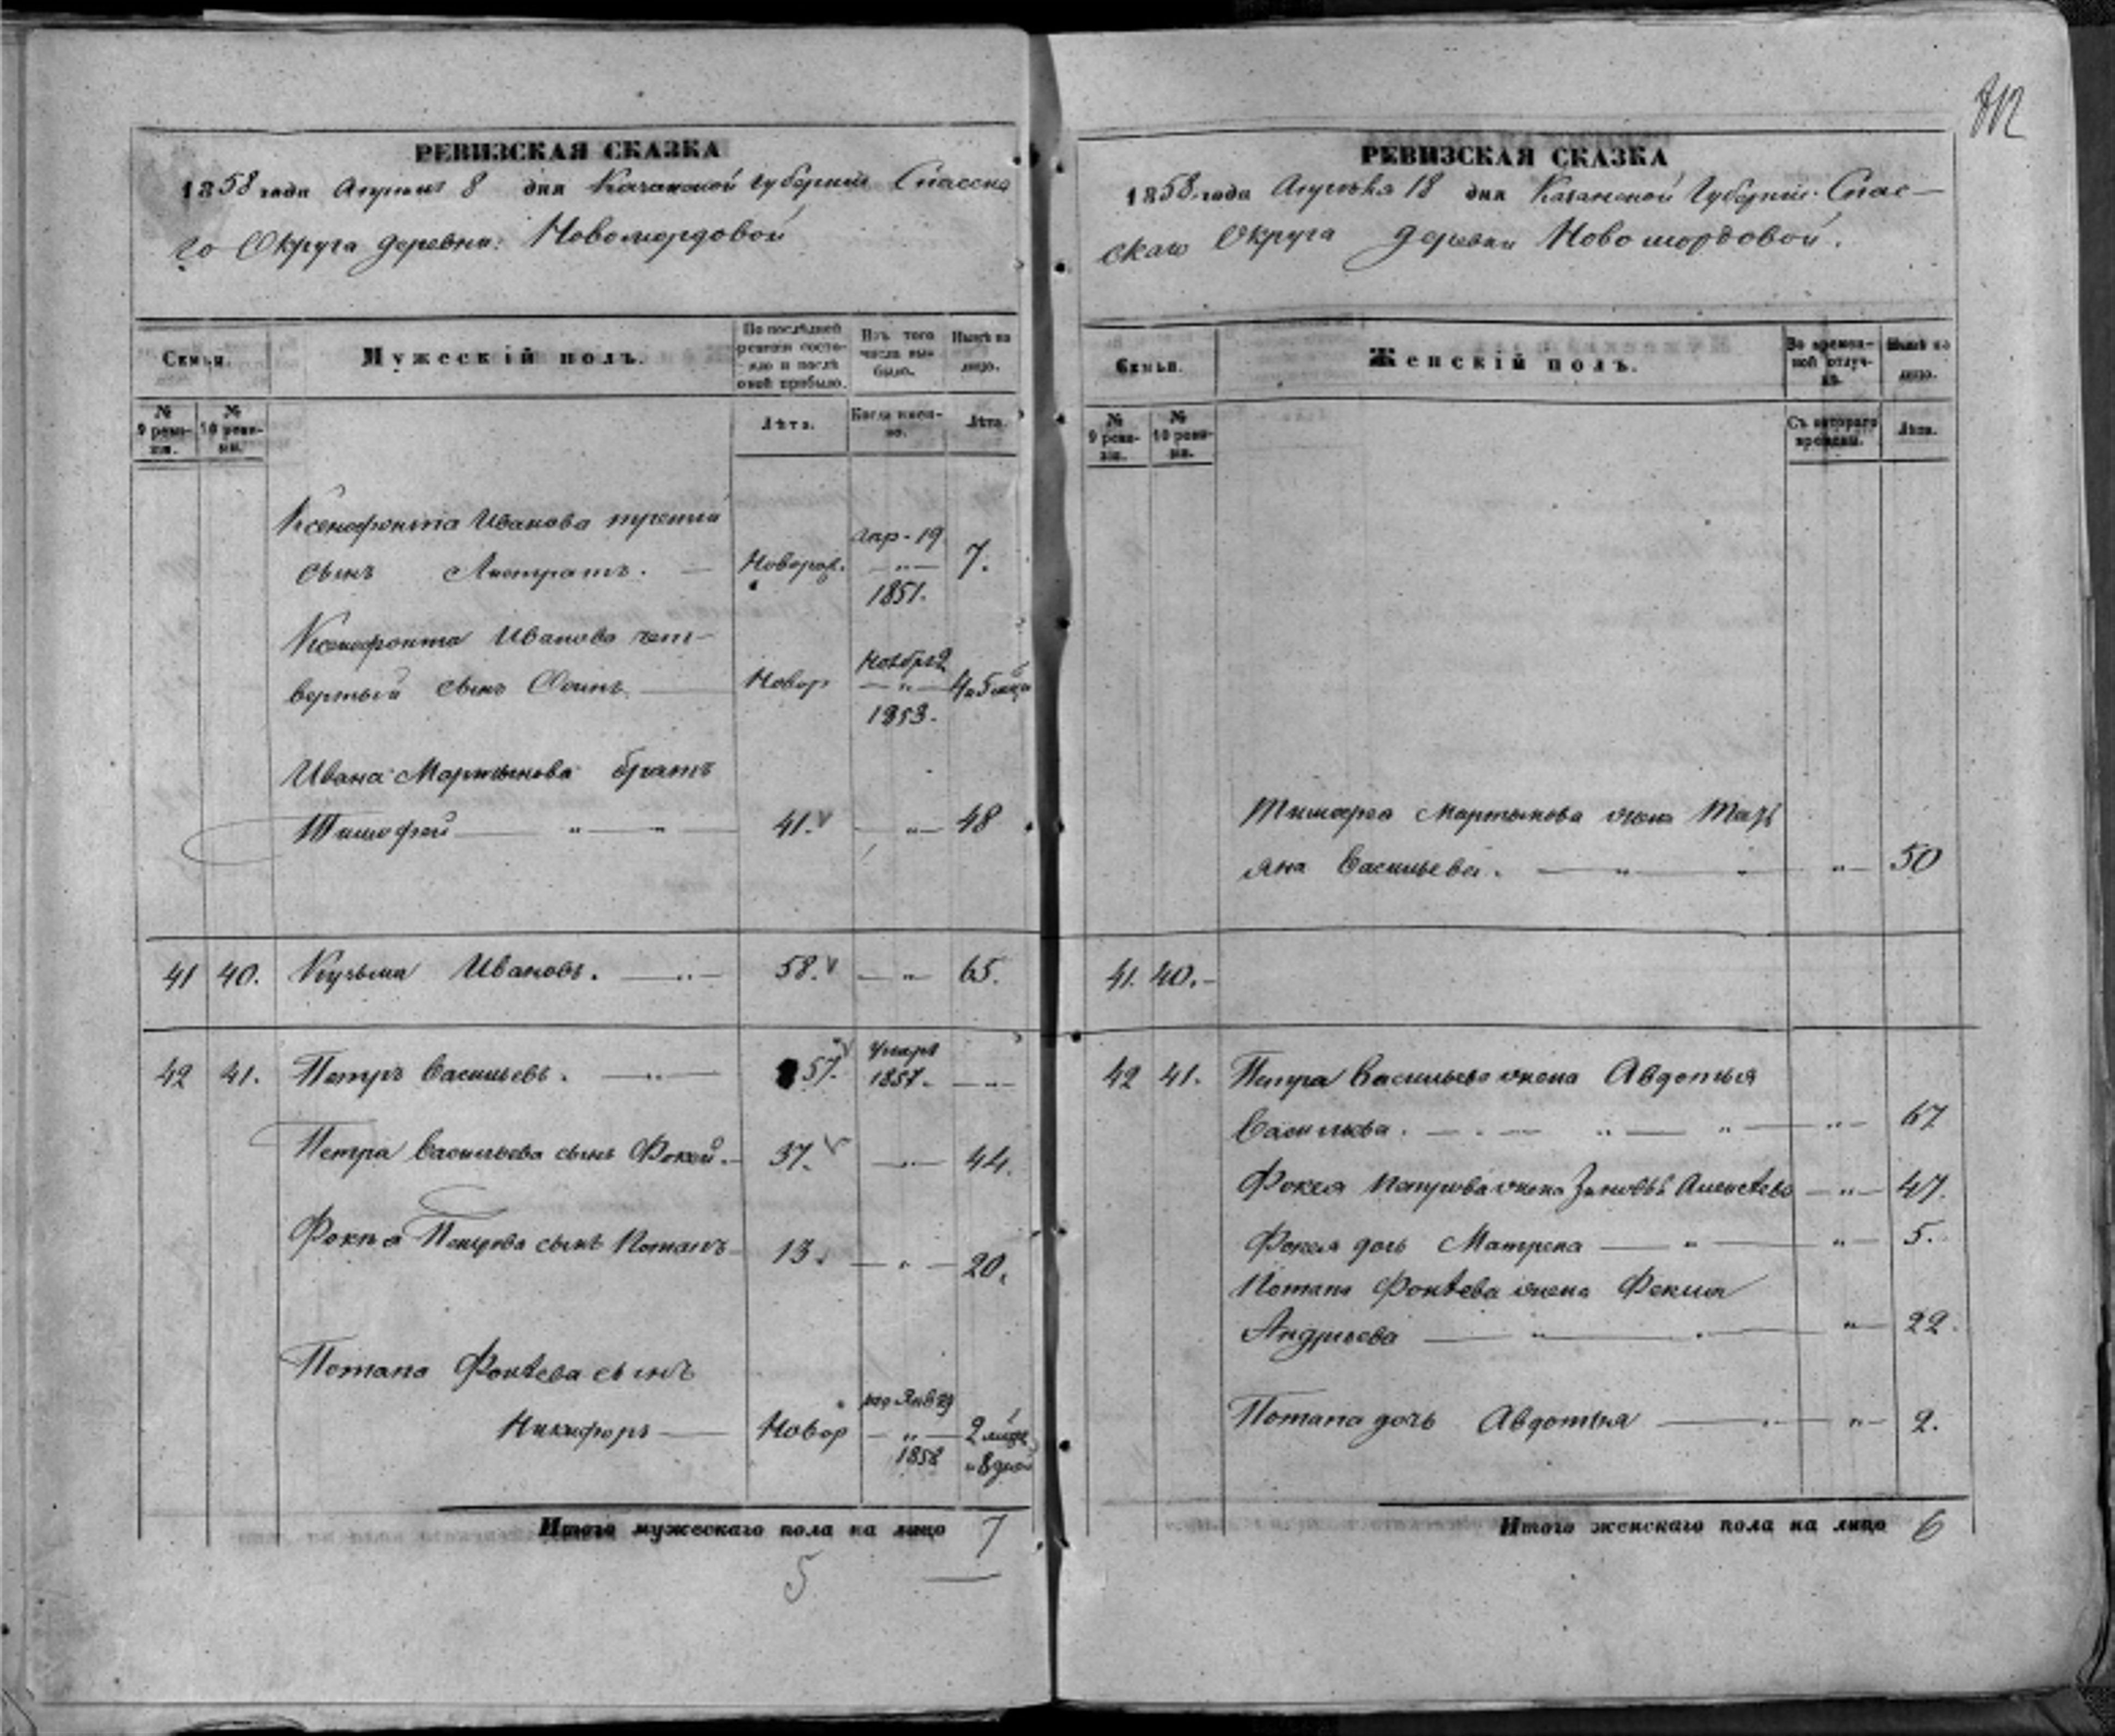 812
РЕВИЗСКАЯ СКАЗКА
1858 года Апреля 8 дня Казанской Губернии Спасска
го Округа деревни Новомордовой
Семьи.
Мужескій полъ.
По послѣдней ревизіи состояло и послѣ оной прибыло.
Изъ того числа выбыло.
Нынѣ на лицо.
№ 9 ревизіи.
№ 10 ревизіи.
Лѣта.
Когда именно.
Лѣта.
Ксенофонта Иванова третий
сынъ Листратъ. Новорож. Апр - 19 1851. 7.
Ксенофонта Иванова чет-
вертый сынъ Новор Ноября 2 1853. 4 и 5 мѣся
Ивана Мартынова братъ
Тимофей 41. 48
41 40. Кузьма Ивановъ. 58. 65.
42 41. Петръ Васильевъ. 57. Умеръ 1857.
Петра Васильева сынъ Фокей. 37. 44.
Фокѣя Петрова сынъ Потапъ 13. 20.
Потапа Фокѣева сынъ
Никифоръ Новор Янв 29 1858 2 мѣся и 8 дней
Итого мужескаго пола на лицо 7
5
РЕВИЗСКАЯ СКАЗКА
1858 года Апреля 18 дня Казанской Губернии Спас-
скаго Округа деревни Новомордовой.
Семьи.
Женскій полъ.
Во временной отлучкѣ.
Нынѣ на лицо.
№ 9 ревизіи.
№ 10 ревизіи.
Съ котораго времени.
Лѣта.
Тимофея Мартынова жена Тать
яна Васильева. 50
41. 40.
42 41. Петра Васильева жена Авдотья
Васильева. 67
Фокея Петрова жена Зиновья Алексѣева 47.
Фокея дочь Матрена 5.
Потапа Фокѣева жена Фекла
Андреева 22.
Потапа дочь Авдотья 2.
Итого женскаго пола на лицо 6